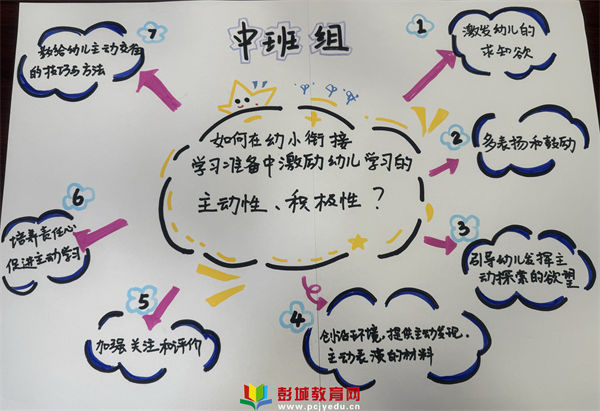 中班组
如何在幼小衔接
学习准备中激励幼儿学习的
主动性、积极性？
1
激发幼儿的
求知欲
2
多表扬和鼓励
3
引导幼儿发挥主
动探索的欲望
4
创设环境，提供主动发现、
主动表演的材料
5
加强关注和评价
6
培养责任心
促进主动学习
7
教给幼儿主动交往
的技巧与方法
彭城教育网
www.pcjyedu.cn